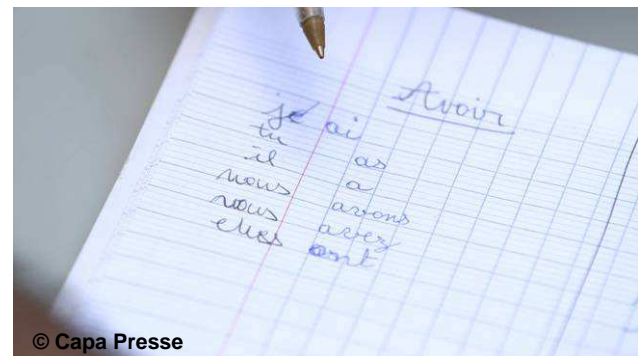 Avoir
je ai
tu as
il a
nous avons
vous avez
elles ont
© Capa Presse